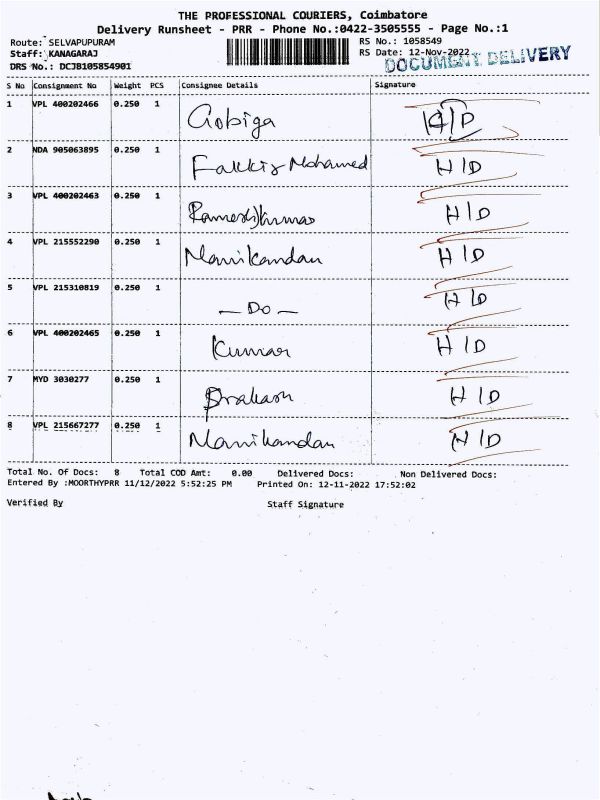 THE PROFESSIONAL COURIERS, Coimbatore
Delivery Runsheet - PRR - Phone No.:0422-3505555 - Page No.:1
Route: SELVAPUPURAM RS No.: 1058549
Staff: KANAGARAJ RS Date: 12-Nov-2022
DRS No.: DCJB105854901 DOCUMENT DELIVERY
S No Consignment No Weight PCS Consignee Details Signature
1 VPL 400202466 0.250 1 Gobiga H/D
2 NDA 905063895 0.250 1 Fakkir Mohamed H/D
3 VPL 400202463 0.250 1 Rameshkumar H/D
4 VPL 215552290 0.250 1 Manikandan H/D
5 VPL 215310819 0.250 1 — Do — H/D
6 VPL 400202465 0.250 1 Kumar H/D
7 MYD 3030277 0.250 1 Prakash H/D
8 VPL 215667277 0.250 1 Manikandan H/D
Total No. Of Docs: 8 Total COD Amt: 0.00 Delivered Docs: Non Delivered Docs:
Entered By :MOORTHYPRR 11/12/2022 5:52:25 PM Printed On: 12-11-2022 17:52:02
Verified By Staff Signature